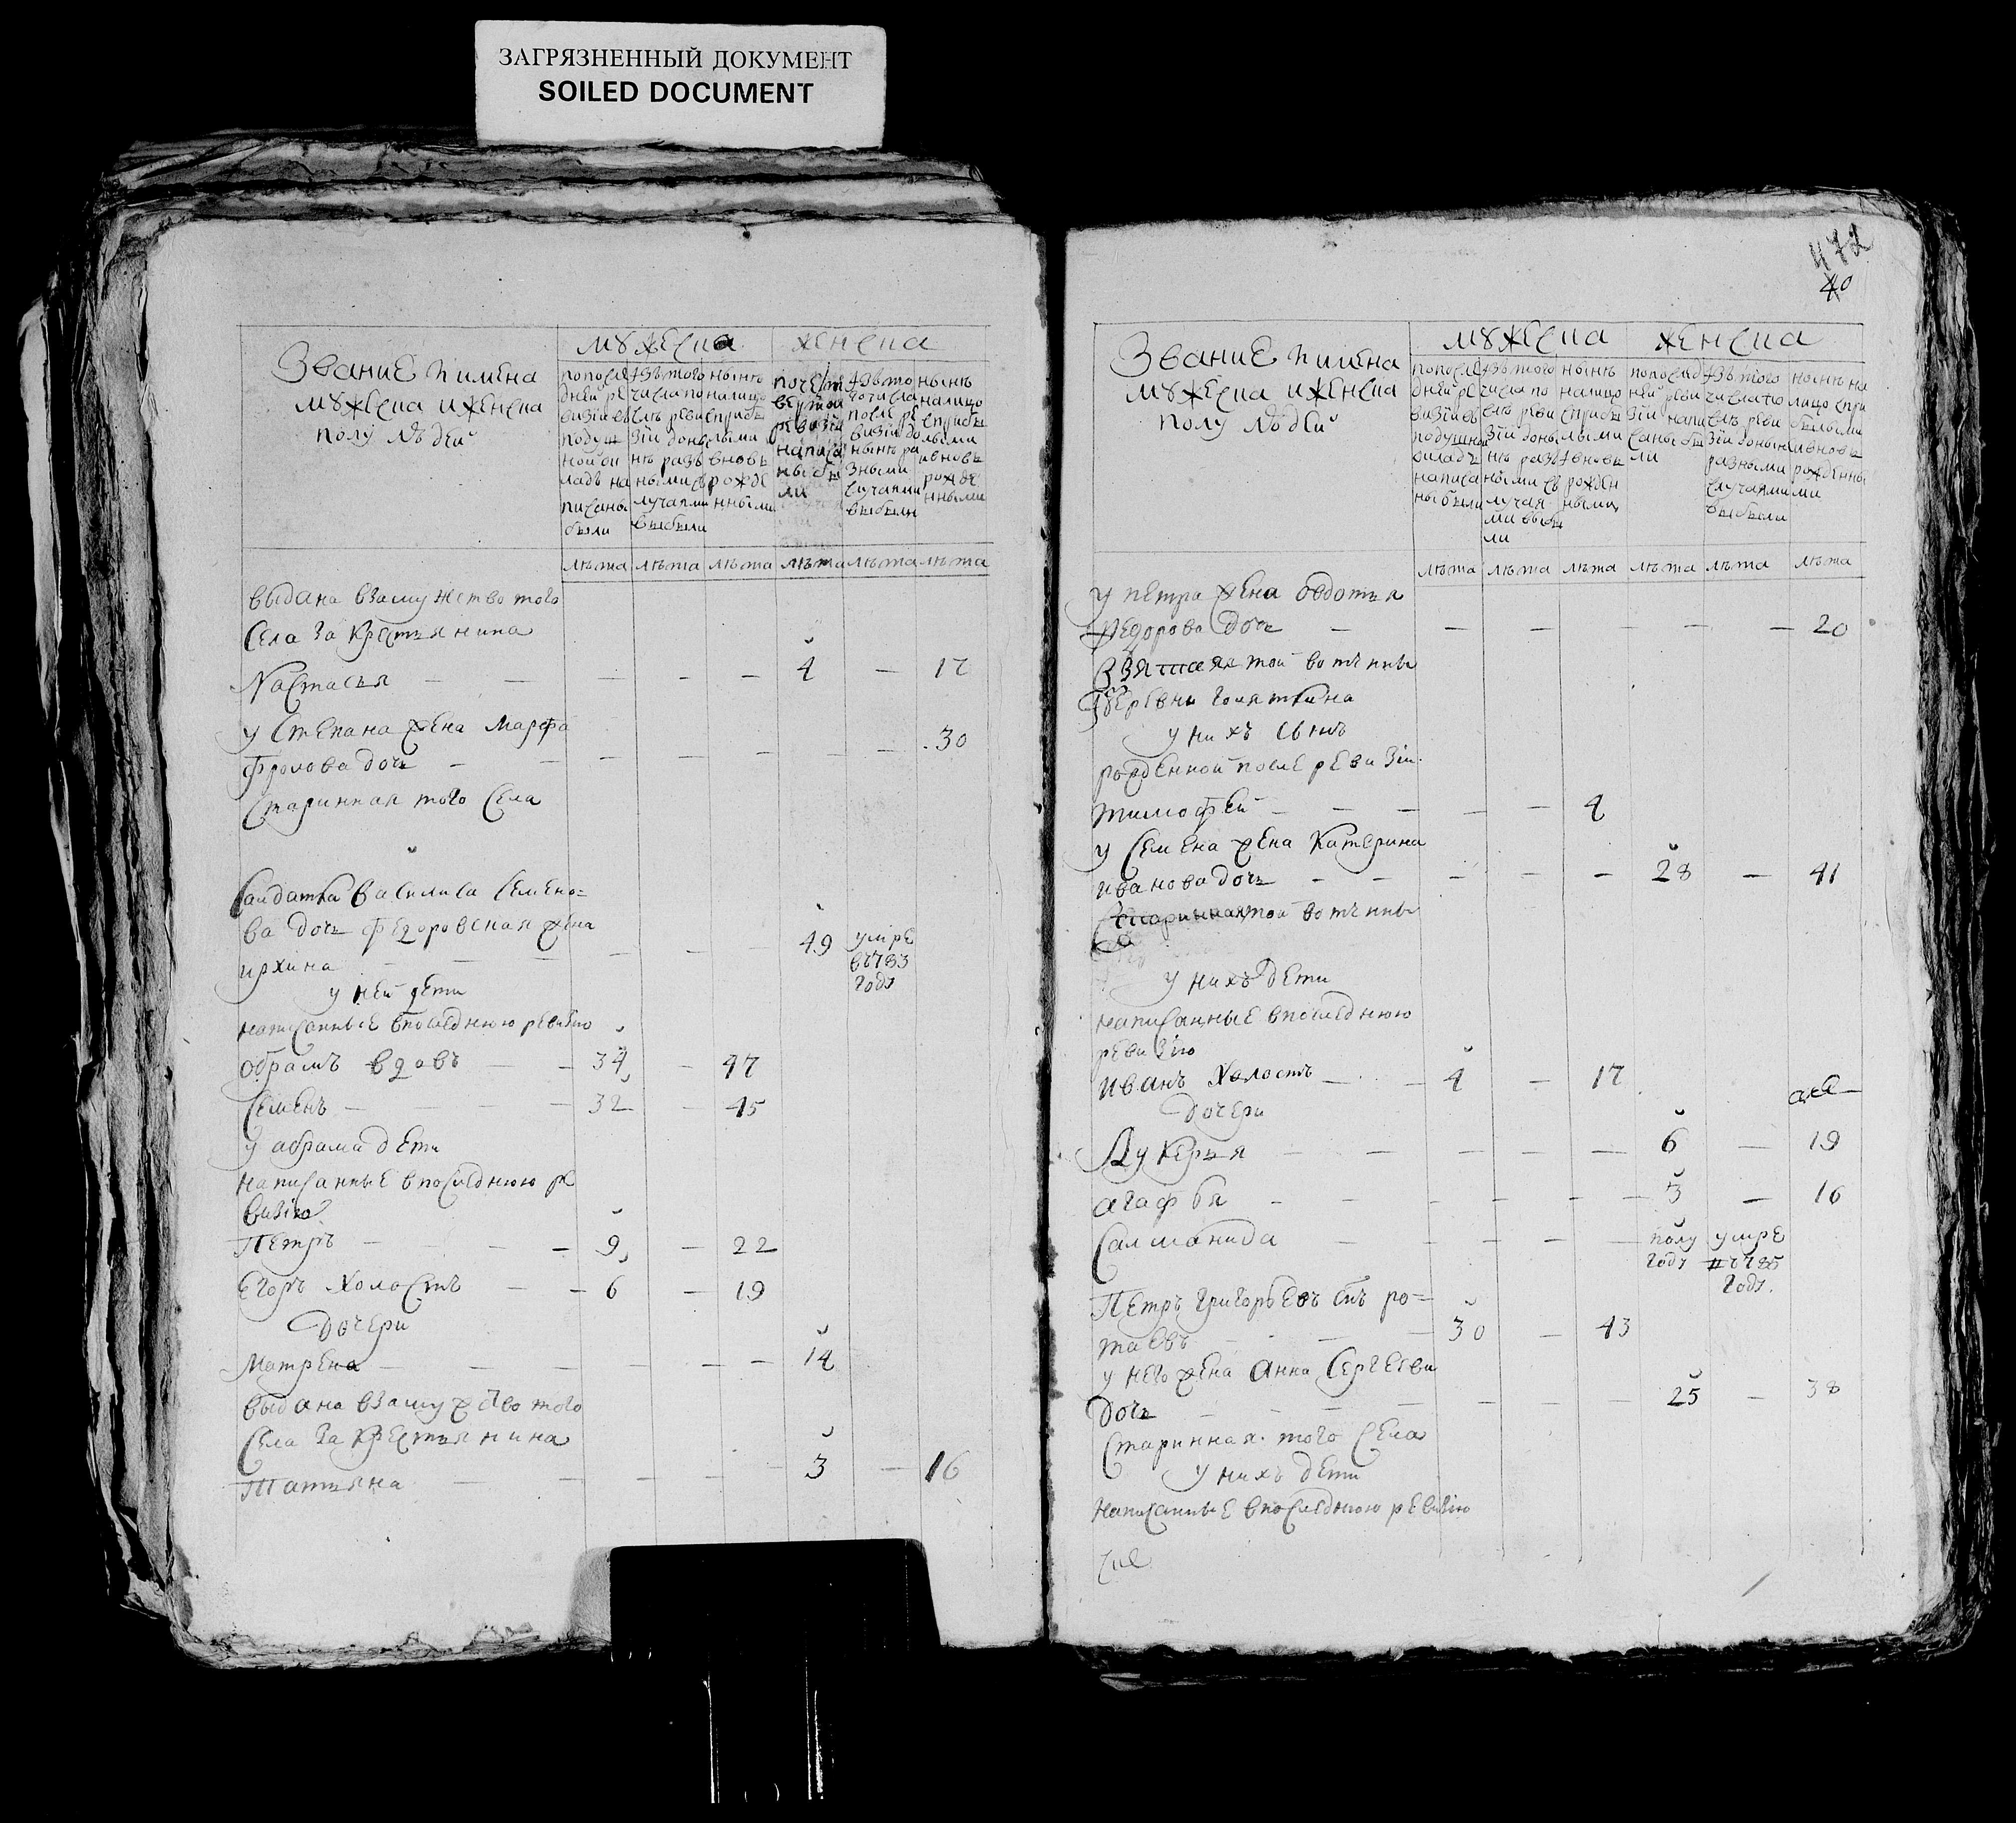 ЗАГРЯЗНЕННЫЙ ДОКУМЕНТ
SOILED DOCUMENT
Звание и имена
мужеска и женска
полу людей
мужеска
женска
попослѣ
дней ре
визіи въ
подуш
ной ок
ладъ на
писаны
были
изъ того
числа по
слѣ реви
зіи доны
нѣ разъ
ными сл
лучаями
выбыли
нынѣ
налицо
с прибы
лыми
вновь
рожде
нными
написа
ны бы
ли
изъ то
го числа
после ре
визіи до
нынѣ ра
зными
случаями
выбыли
нынѣ
налицо
с прибы
лыми
и вновь
рожде
нными
лѣта лѣта лѣта лѣта лѣта лѣта
выдана взамужство того
села за крестьянина
Настасья 4 17
у Степана жена Марфа
Фролова дочь 30
старинная того села
Салдатка Василиса Семено=
ва дочь Федоровская жена
ирхина 49 умре
в 1783
году
у ней дети
написанные впоследнюю ревизию
обрамъ вдовъ 34 47
Семенъ 32 45
у абрама дети
написанные впоследнюю ре
визію
Петръ 9 22
Егоръ холостъ 6 19
дочери
Матрена 14
выдана взамужство того
села за крестьянина
Татьяна 3 16
472
40
Звание и имена
мужеска и женска
полу людей
мужеска
женска
попослѣ
дней ре
визіи въ
подушной
окладъ
написа
ны были
изъ того
числа по
слѣ реви
зіи доны
нѣ разъ
ными сл
лучая
ми выбы
ли
нынѣ
налицо
с прибы
лыми
и вновь
рожден
ными
попослѣд
ней реви
зіи напи
саны бы
ли
изъ того
числа по
слѣ реви
зіи донынѣ
разными
случаями
выбыли
нынѣ на
лицо с при
былыми
и вновь
рожденны
ми
лѣта лѣта лѣта лѣта лѣта лѣта
у петра жена овдотья
Федорова дочь 20
взятая той вотчины
деревни голяткина
у нихъ сынъ
рожденной после ревизіи
тимофей 4
у Семена жена Катерина
иванова дочь 28 41
старинная той вотчины
у нихъ дети
написанные впоследнюю
ревизію
иванъ холостъ 4 17
дочери
Лукерья 6 19
агафья 3 16
Салманида полу
году умре
1785
году
Петръ григорьевъ снъ ро=
таевъ 30 43
у него жена Анна Сергеева
дочь 25 38
старинная того села
у нихъ дети
написанные впоследнюю ревизію